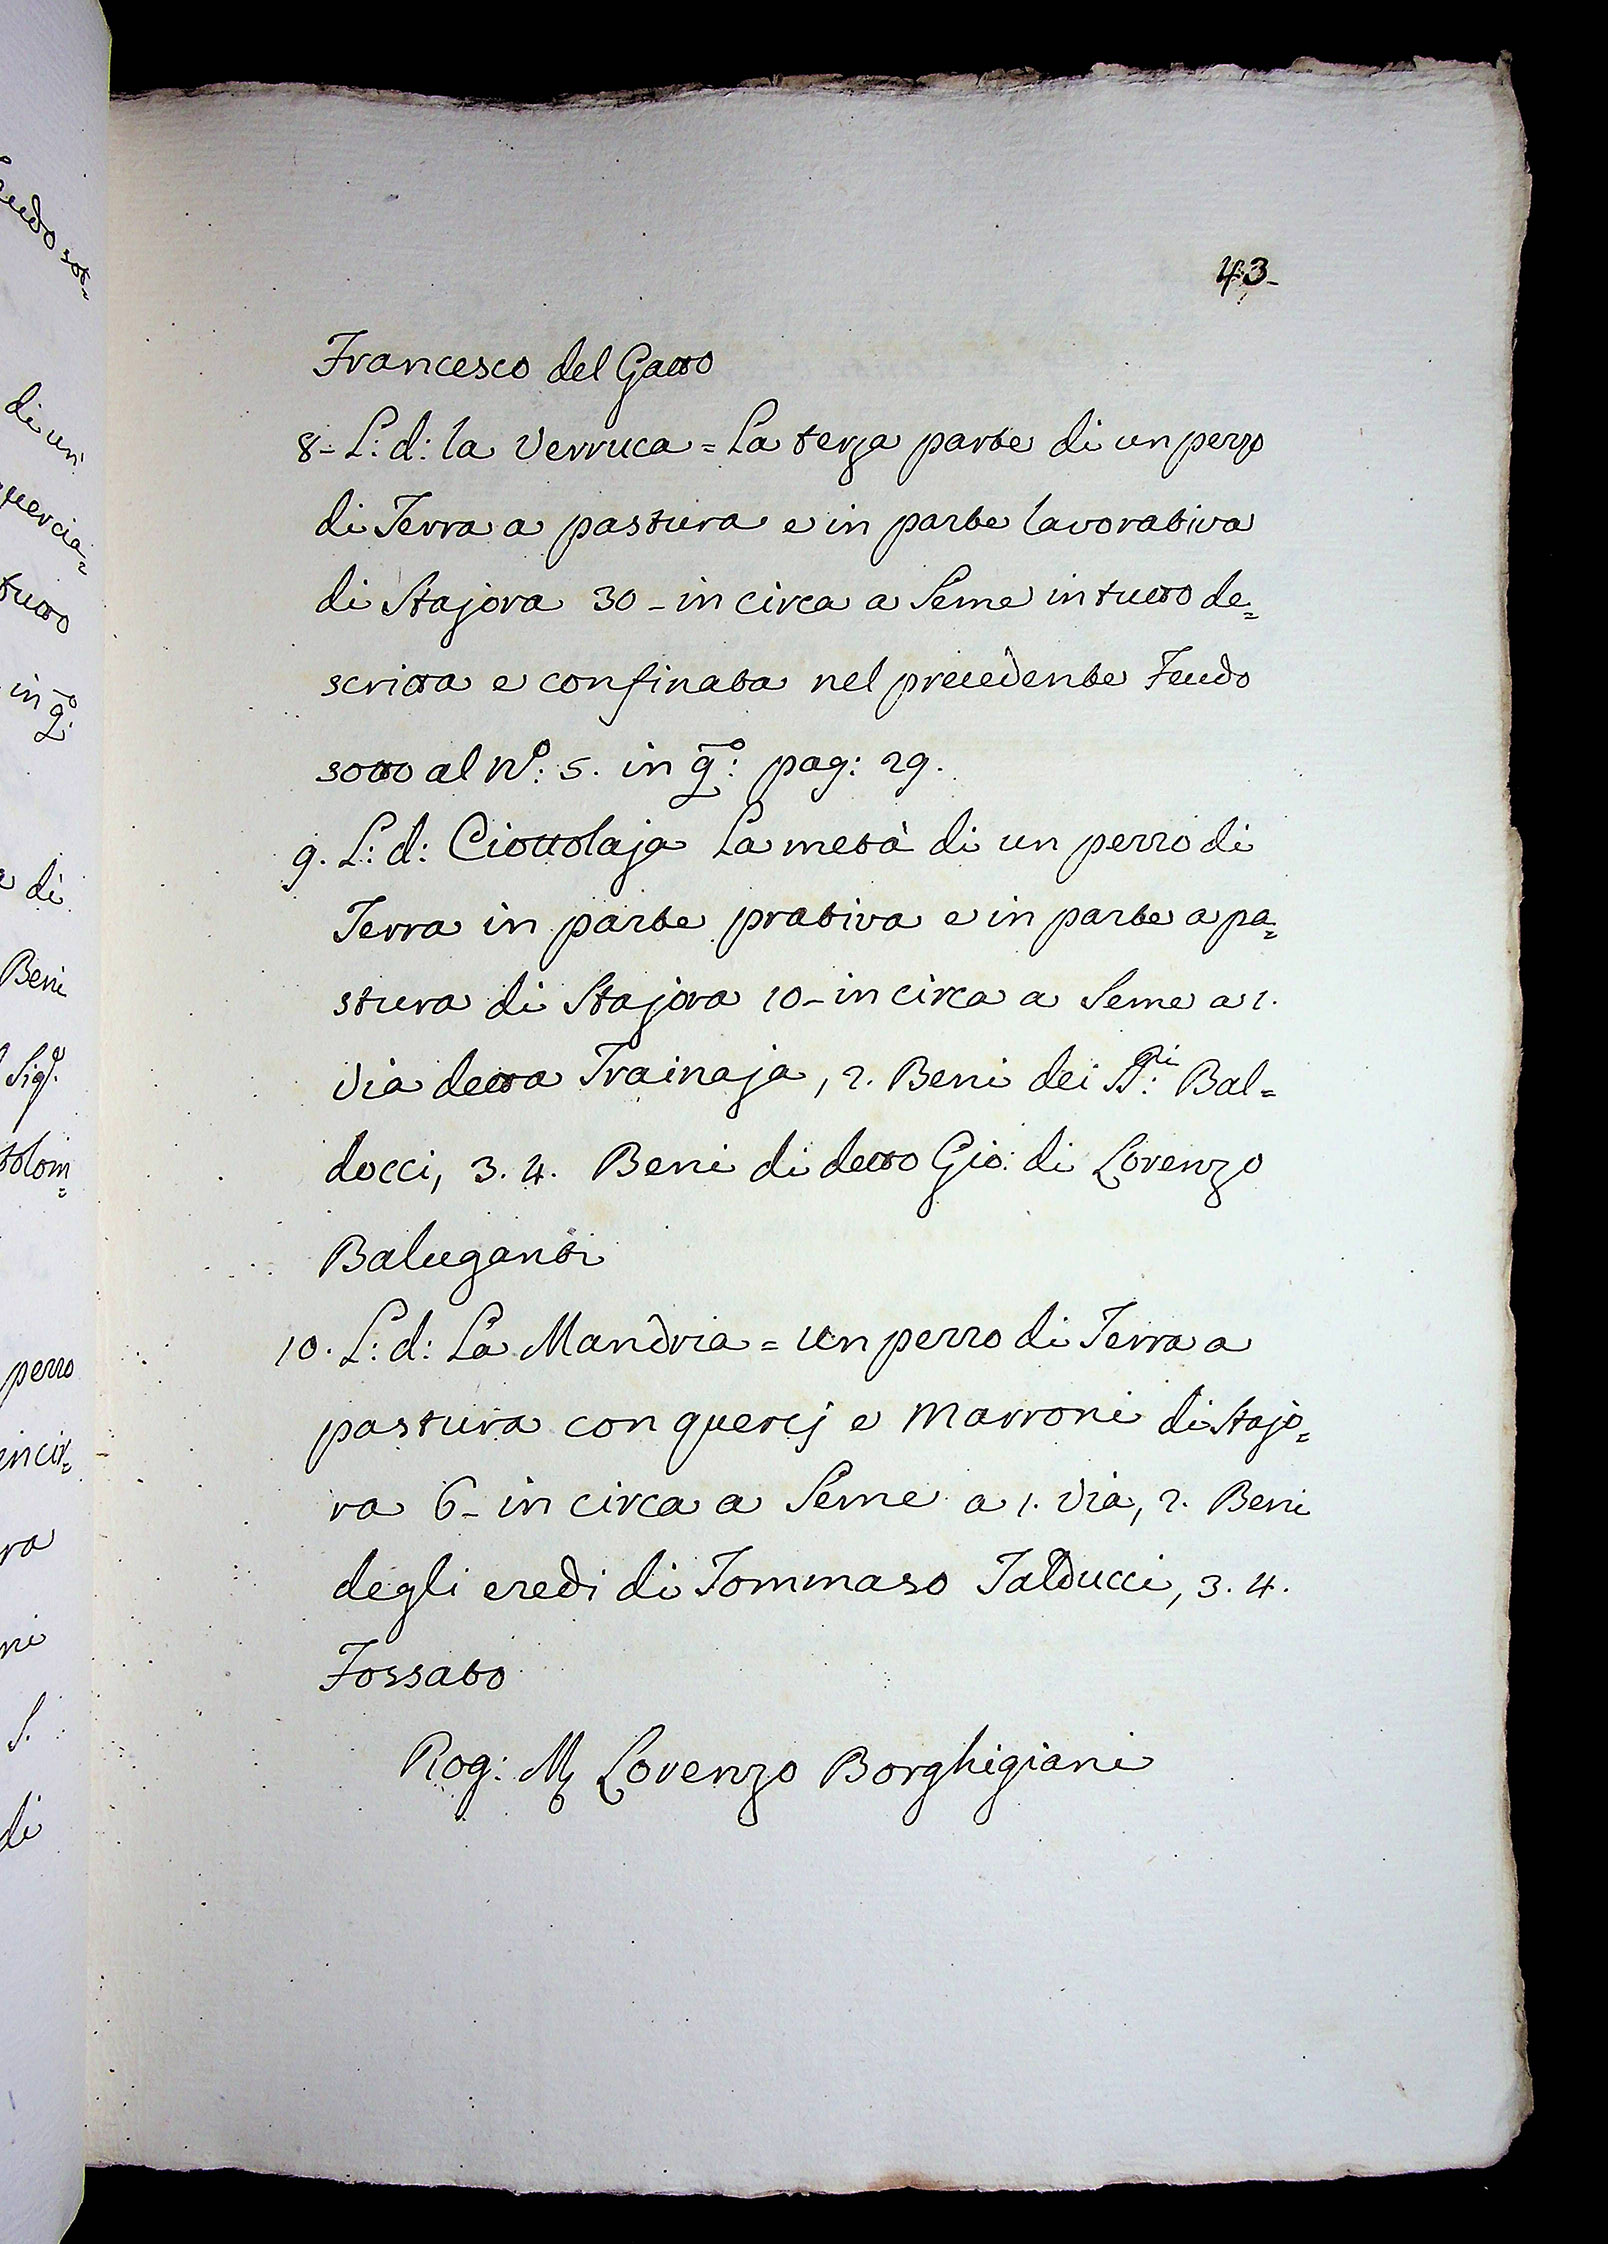 43-
Francesco del Gatto
8- L: d: la Verruca = La terza parte di un pezzo
di Terra a pastura e in parte lavorativa
di Stajora 30 - in circa a Seme in tutto de=
scritta e confinata nel precedente Feudo
sotto al N°: 5. in q°: pag: 29.
9. L: d: Ciottolaja La metà di un pezzo di
Terra in parte prativa e in parte a pa=
stura di Stajora 10 - in circa a Seme a 1.
Via detta Trainaja, 2. Beni dei SS:ri Bal=
docci, 3. 4. Beni di detto Gio: di Lorenzo
Baluganti
10. L: d: La Mandria = un pezzo di Terra a
pastura con quercj e Marroni di Stajo=
ra 6 - in circa a Seme a 1. Via, 2. Beni
degli eredi di Tommaso Talducci, 3. 4.
Fossato
Rog: M Lorenzo Borghigiani
di un
quercia=
tutto
in q°:
di
Beni
Sigr.
tolom=
pezzo
incir=
ra
ni
S.
di